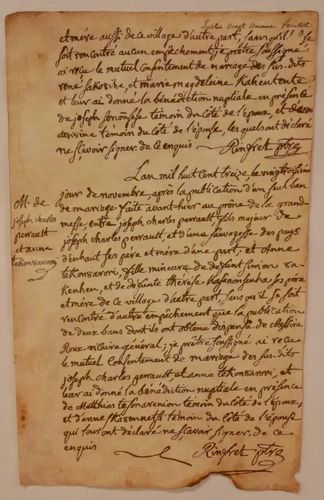 et mère aussi de ce village d'autre part, sans qu'il se
soit rencontré aucun empêchement, je prêtre soussigné
ai reçu le mutuel consentement de mariage des sus-dits
rené et marie magdeleine Kahentente
et leur ai donné la bénédiction nuptiale en présence
de joseph témoin du côté de l'époux, et de
témoin du côté de l'épouse, les quels ont déclaré
ne sçavoir signer. de ce enquis Rinfret ptre
M. de
joseph charles
perrault
et anne
tekonsaronni
L'an mil huit cent treize, le vingt troisième
jour de novembre, après la publication d'un seul ban
de mariage faite avant hier au prône de la grand
messe, entre joseph charles perrault fils majeur de
joseph charles perrault, et d'une sauvagesse des pays
d'enhaut ses père et mère d'une part, et Anne
tekonsaronni, fille mineure de défunt simon
et de défunte thérèse ses père
et mère de ce village d'autre part, sans qu'il se soit
rencontré d'autre empêchement que la publication
de deux bans dont ils ont obtenu dispense de Messire
Roux vicaire général; je prêtre soussigné ai reçu
le mutuel consentement de mariage des sus-dits
joseph charles perrault et anne tekonsaronni, et
leur ai donné la bénédiction nuptiale en présence
de Matthias témoin du côté de l'époux,
et d'anne témoin du côté de l'épouse
qui tous ont déclaré ne sçavoir signer. de ce
enquis Rinfret ptre